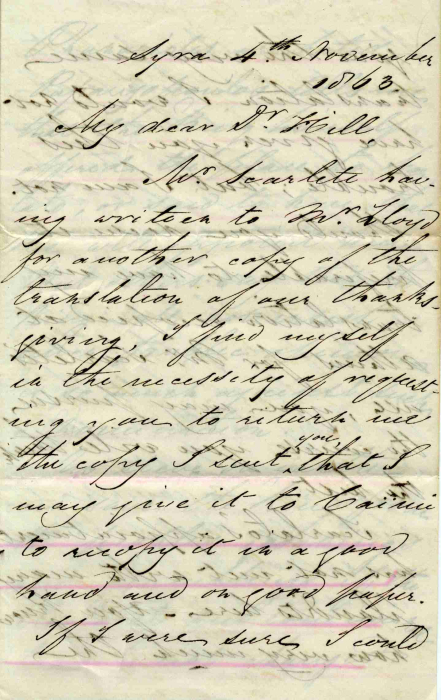 Syra 4th November
1863
My dear Dr. Hill
Mr. Scarlett hav-
ing written to Mr. Lloyd
for another copy of the
translation of our thanks-
giving, I find myself
in the necessity of request-
ing you to return me
the copy I sent you, that I
may give it to
to recopy it in a good
hand and on good paper.
If I were sure I could